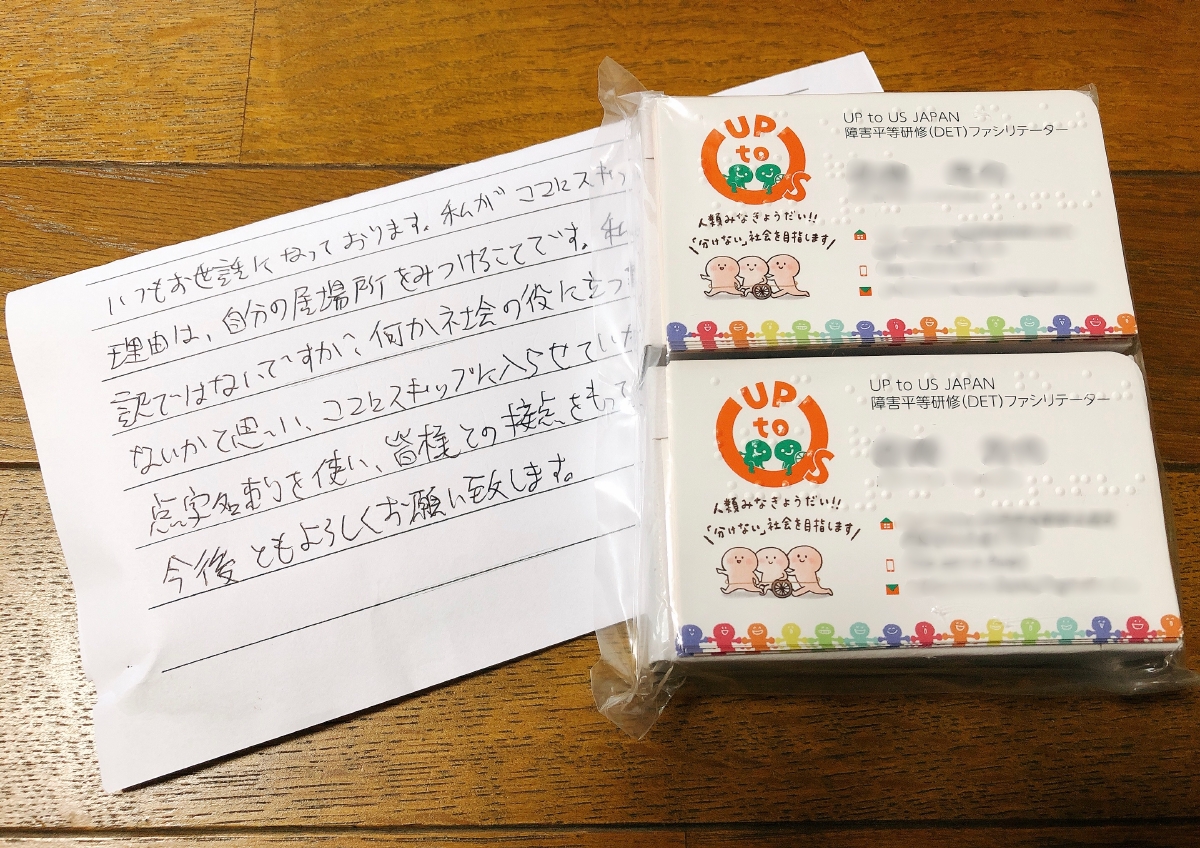 いつもお世話になっております。私が ココにスキッ
理由は、自分の居場所をみつけることです。私
訳ではないですが、何か社会の役に立つ
ないかと思い、ココにスキップに入らせていた
点字名刺を使い、皆様との接点をもって
今後ともよろしくお願い致します。
UP to US
人類みなきょうだい!!
「分けない」社会を目指します
UP to US JAPAN
障害平等研修(DET)ファシリテーター
UP to US
人類みなきょうだい!!
「分けない」社会を目指します
UP to US JAPAN
障害平等研修(DET)ファシリテーター